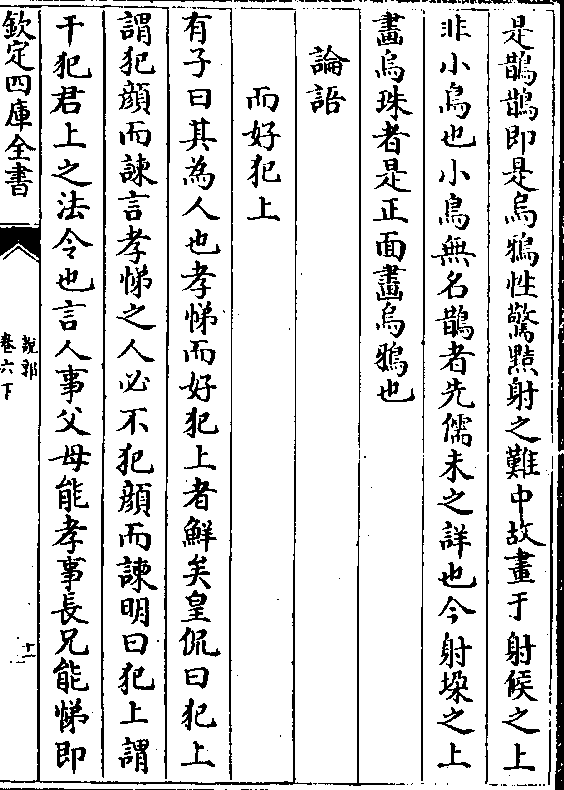 是鵲鵲即是烏鴉性驚黠射之難中故畫于射候之上
非小鳥也小鳥無名鵲者先儒未之詳也今射垛之上
畫烏珠者是正面畫烏鴉也
論語
而好犯上
有子曰其為人也孝悌而好犯上者鮮矣皇侃曰犯上
謂犯顔而諫言孝悌之人必不犯顔而諫明曰犯上謂
干犯君上之法令也言人事父母能孝事長兄能悌即
欽定四庫全書
說郛
卷六下
十二